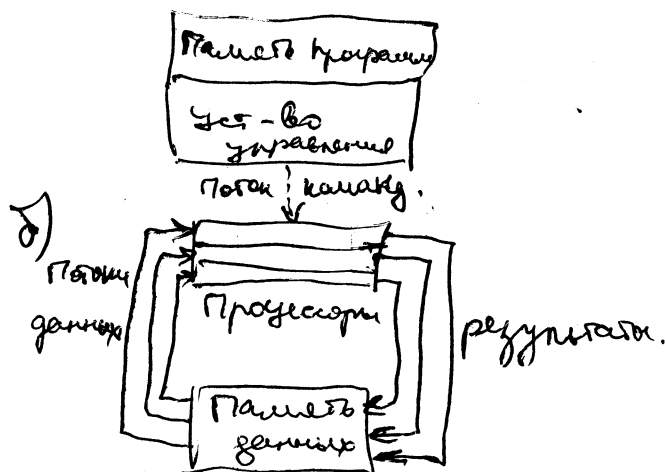 Память программ
уст-во
управления
Поток команд.
б)
Потоки
данных
Процессоры
результаты.
Память
данных